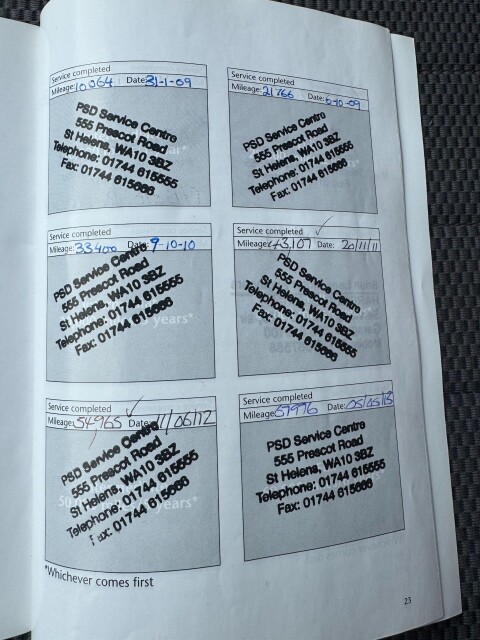 Service completed
Mileage: 10064 Date: 31-1-09
PSD Service Centre
555 Prescot Road
St Helens, WA10 3BZ
Telephone: 01744 615555
Fax: 01744 615666
Service completed
Mileage: 21766 Date: 6-10-09
PSD Service Centre
555 Prescot Road
St Helens, WA10 3BZ
Telephone: 01744 615555
Fax: 01744 615666
Service completed
Mileage: 33400 Date: 9-10-10
PSD Service Centre
555 Prescot Road
St Helens, WA10 3BZ
Telephone: 01744 615555
Fax: 01744 615666
years*
Service completed
Mileage: 43,107 Date: 20/11/11
PSD Service Centre
555 Prescot Road
St Helens, WA10 3BZ
Telephone: 01744 615555
Fax: 01744 615666
Service completed
Mileage: 54965 Date: 11/06/12
PSD Service Centre
555 Prescot Road
St Helens, WA10 3BZ
Telephone: 01744 615555
Fax: 01744 615666
years*
Service completed
Mileage: 57976 Date: 05/05/13
PSD Service Centre
555 Prescot Road
St Helens, WA10 3BZ
Telephone: 01744 615555
Fax: 01744 615666
*Whichever comes first
23